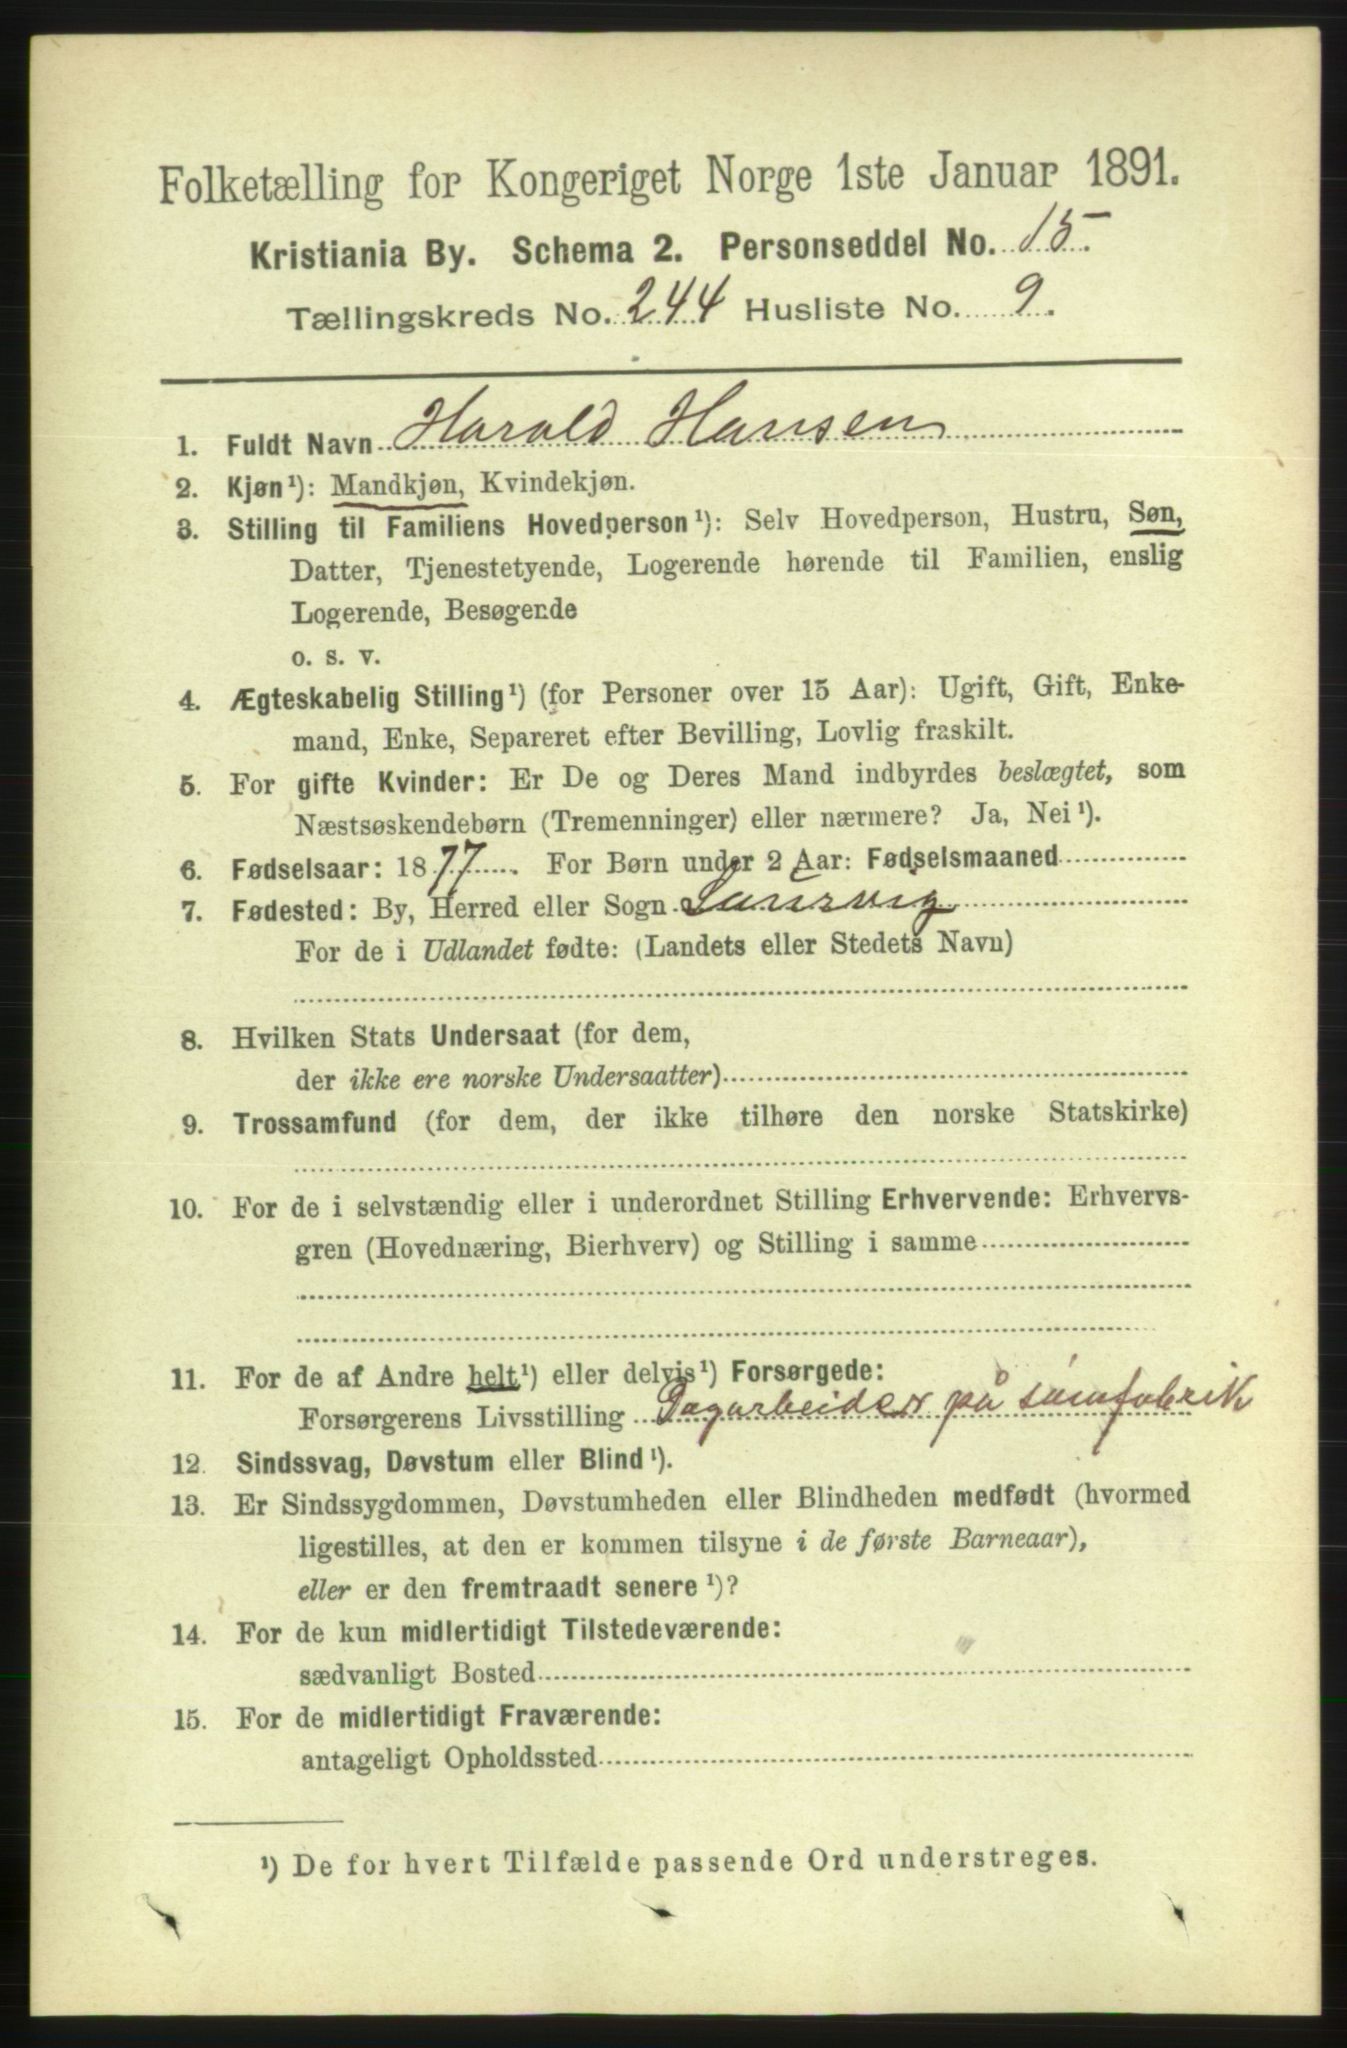 Folketælling for Kongeriget Norge 1ste Januar 1891.
Kristiania By. Schema 2. Personseddel No. 15.
Tællingskreds No. 244 Husliste No. 9.
1. Fuldt Navn Harald Hansen
2. Kjøn¹): Mandkjøn, Kvindekjøn.
3. Stilling til Familiens Hovedperson¹): Selv Hovedperson, Hustru, Søn,
Datter, Tjenestetyende, Logerende hørende til Familien, enslig
Logerende, Besøgende
o. s. v.
4. Ægteskabelig Stilling¹) (for Personer over 15 Aar): Ugift, Gift, Enke-
mand, Enke, Separeret efter Bevilling, Lovlig fraskilt.
5. For gifte Kvinder: Er De og Deres Mand indbyrdes beslægtet, som
Næstsøskendebørn (Tremenninger) eller nærmere? Ja, Nei¹).
6. Fødselsaar: 1877. For Børn under 2 Aar: Fødselsmaaned
7. Fødested: By, Herred eller Sogn Laurvig
For de i Udlandet fødte: (Landets eller Stedets Navn)
8. Hvilken Stats Undersaat (for dem,
der ikke ere norske Undersaatter)
9. Trossamfund (for dem, der ikke tilhøre den norske Statskirke)
10. For de i selvstændig eller i underordnet Stilling Erhvervende: Erhvervs-
gren (Hovednæring, Bierhverv) og Stilling i samme
11. For de af Andre helt¹) eller delvis¹) Forsørgede:
Forsørgerens Livsstilling Dagarbeider på sømfabrik
12. Sindssvag, Døvstum eller Blind¹).
13. Er Sindssygdommen, Døvstumheden eller Blindheden medfødt (hvormed
ligestilles, at den er kommen tilsyne i de første Barneaar),
eller er den fremtraadt senere¹)?
14. For de kun midlertidigt Tilstedeværende:
sædvanligt Bosted
15. For de midlertidigt Fraværende:
antageligt Opholdssted
¹) De for hvert Tilfælde passende Ord understreges.